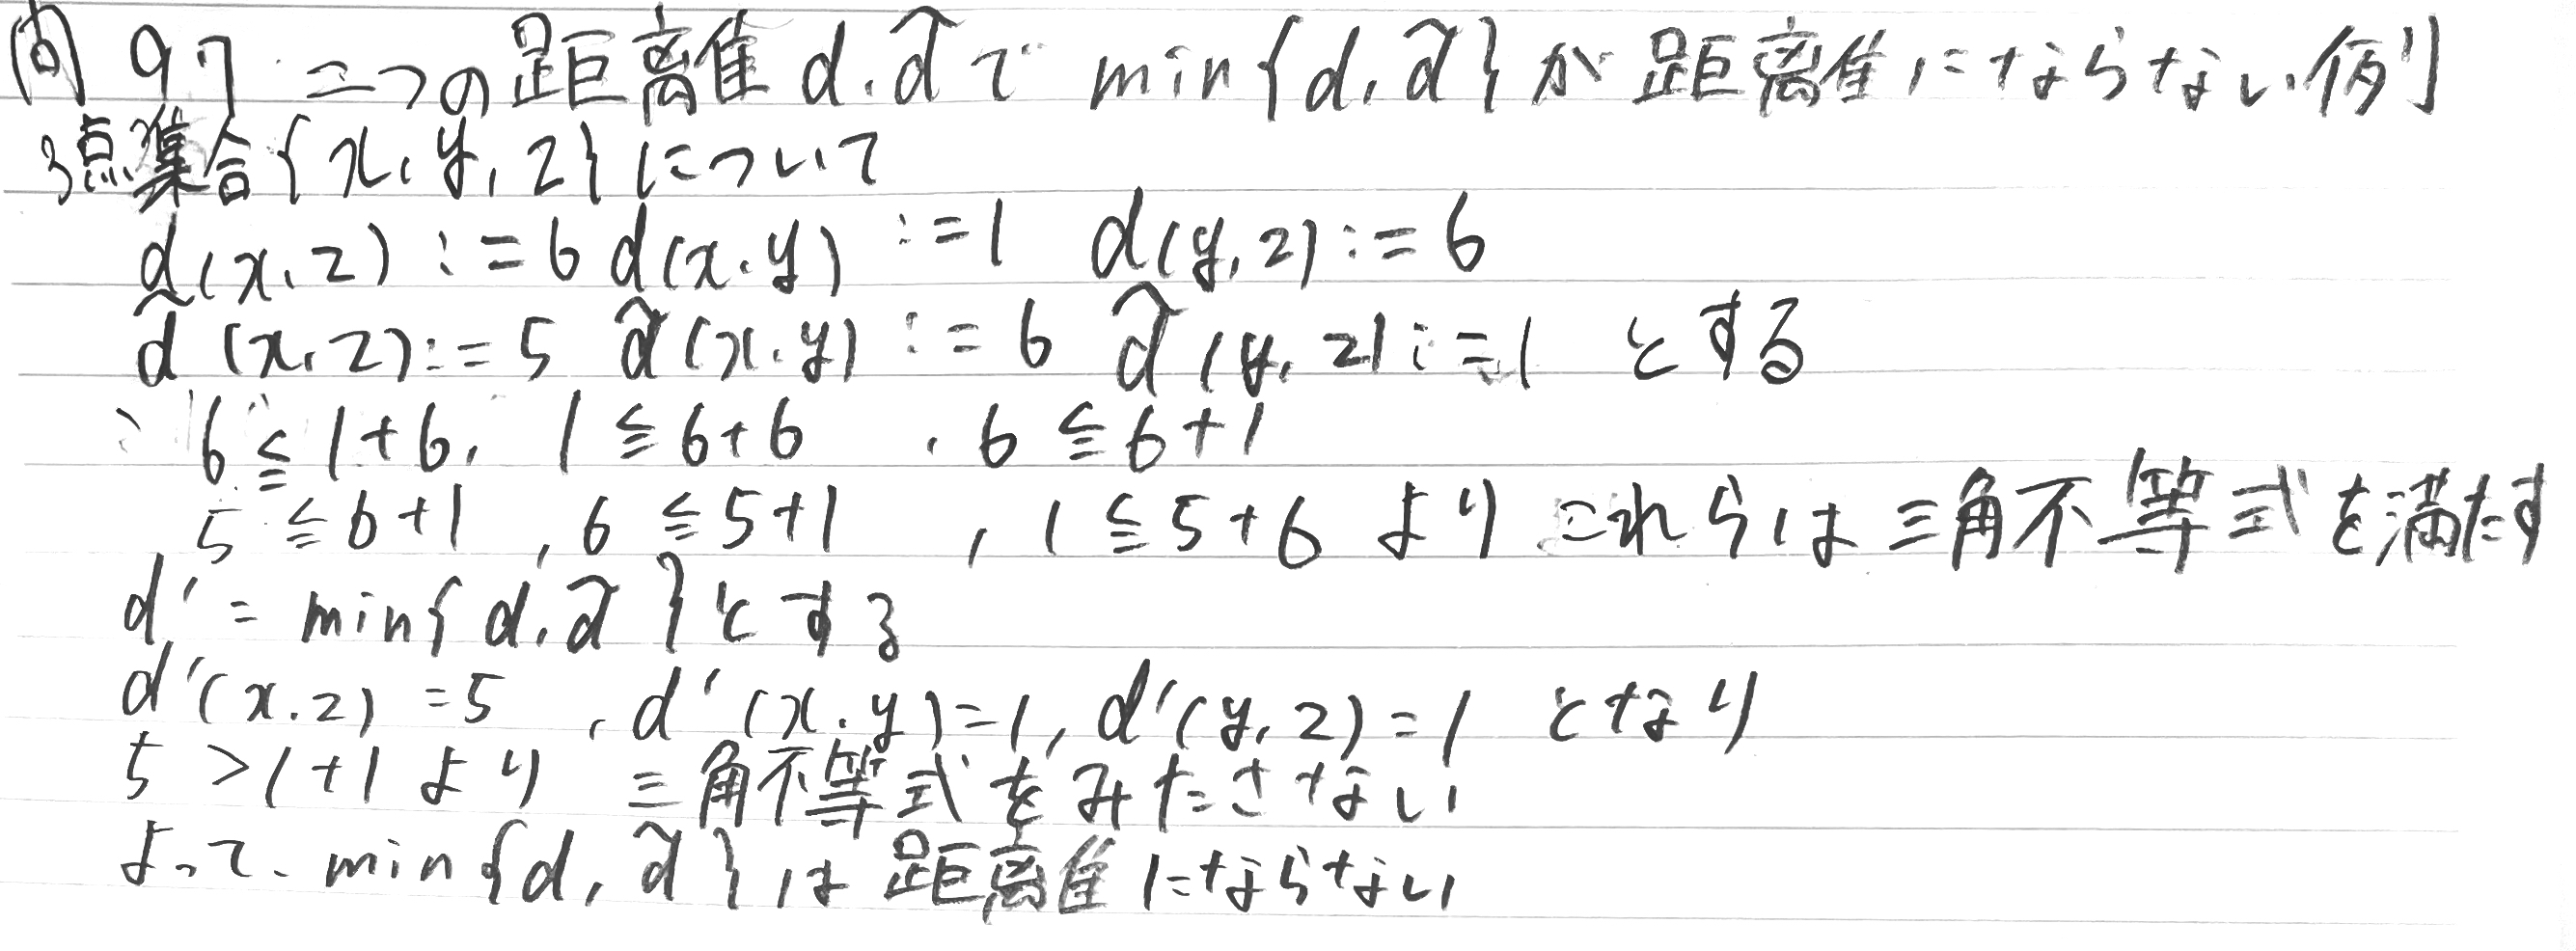 問97 二つの距離d,d̃でmin{d,d̃}が距離にならない例
3点集合{x,y,z}について
d(x,z):=6 d(x,y):=1 d(y,z):=6
d̃(x,z):=5 d̃(x,y):=6 d̃(y,z):=1 とする
6≦1+6, 1≦6+6, 6≦6+1
5≦6+1, 6≦5+1, 1≦5+6 より これらは三角不等式を満たす
d'=min{d,d̃}とする
d'(x,z)=5, d'(x,y)=1, d'(y,z)=1 となり
5>1+1より 三角不等式をみたさない
よって、min{d,d̃}は距離にならない